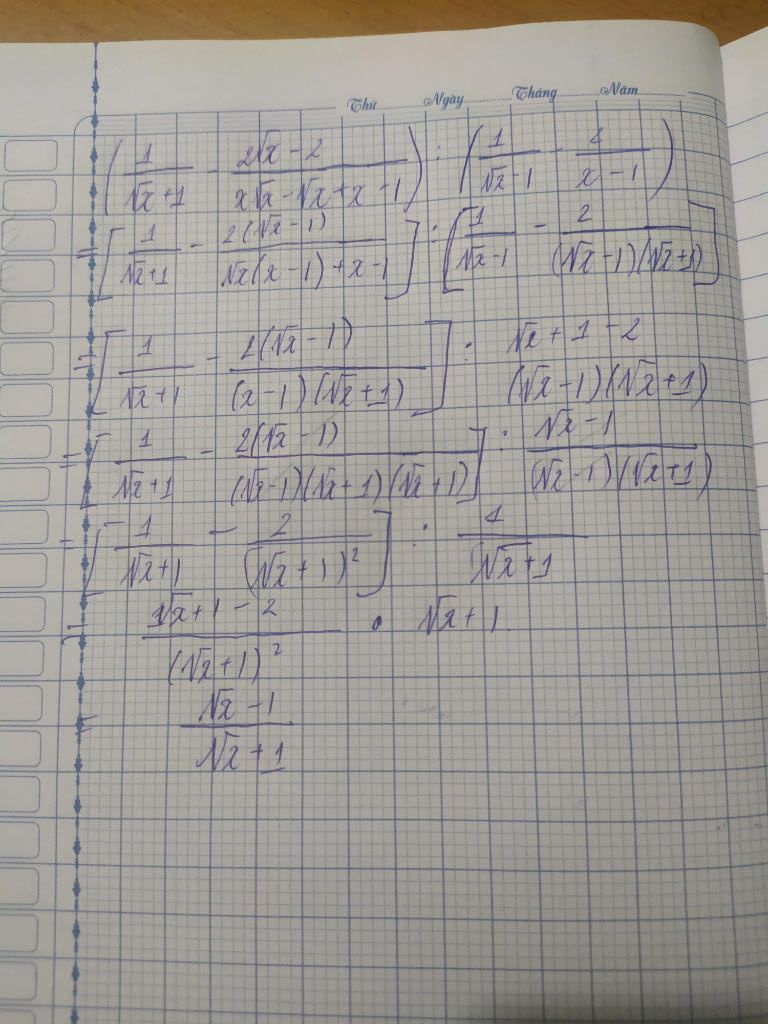 Thứ Ngày Tháng Năm
(1/(√x+1) - (2√x-2)/(x√x-√x+x-1)) : (1/(√x-1) - 2/(x-1))
= [1/(√x+1) - 2(√x-1)/(√x(x-1)+x-1)] : [1/(√x-1) - 2/((√x-1)(√x+1))]
= [1/(√x+1) - 2(√x-1)/((x-1)(√x+1))] : (√x+1-2)/((√x-1)(√x+1))
= [1/(√x+1) - 2(√x-1)/((√x-1)(√x+1)(√x+1))] : (√x-1)/((√x-1)(√x+1))
= [1/(√x+1) - 2/(√x+1)²] : 1/(√x+1)
= (√x+1-2)/(√x+1)² . √x+1
= (√x-1)/(√x+1)